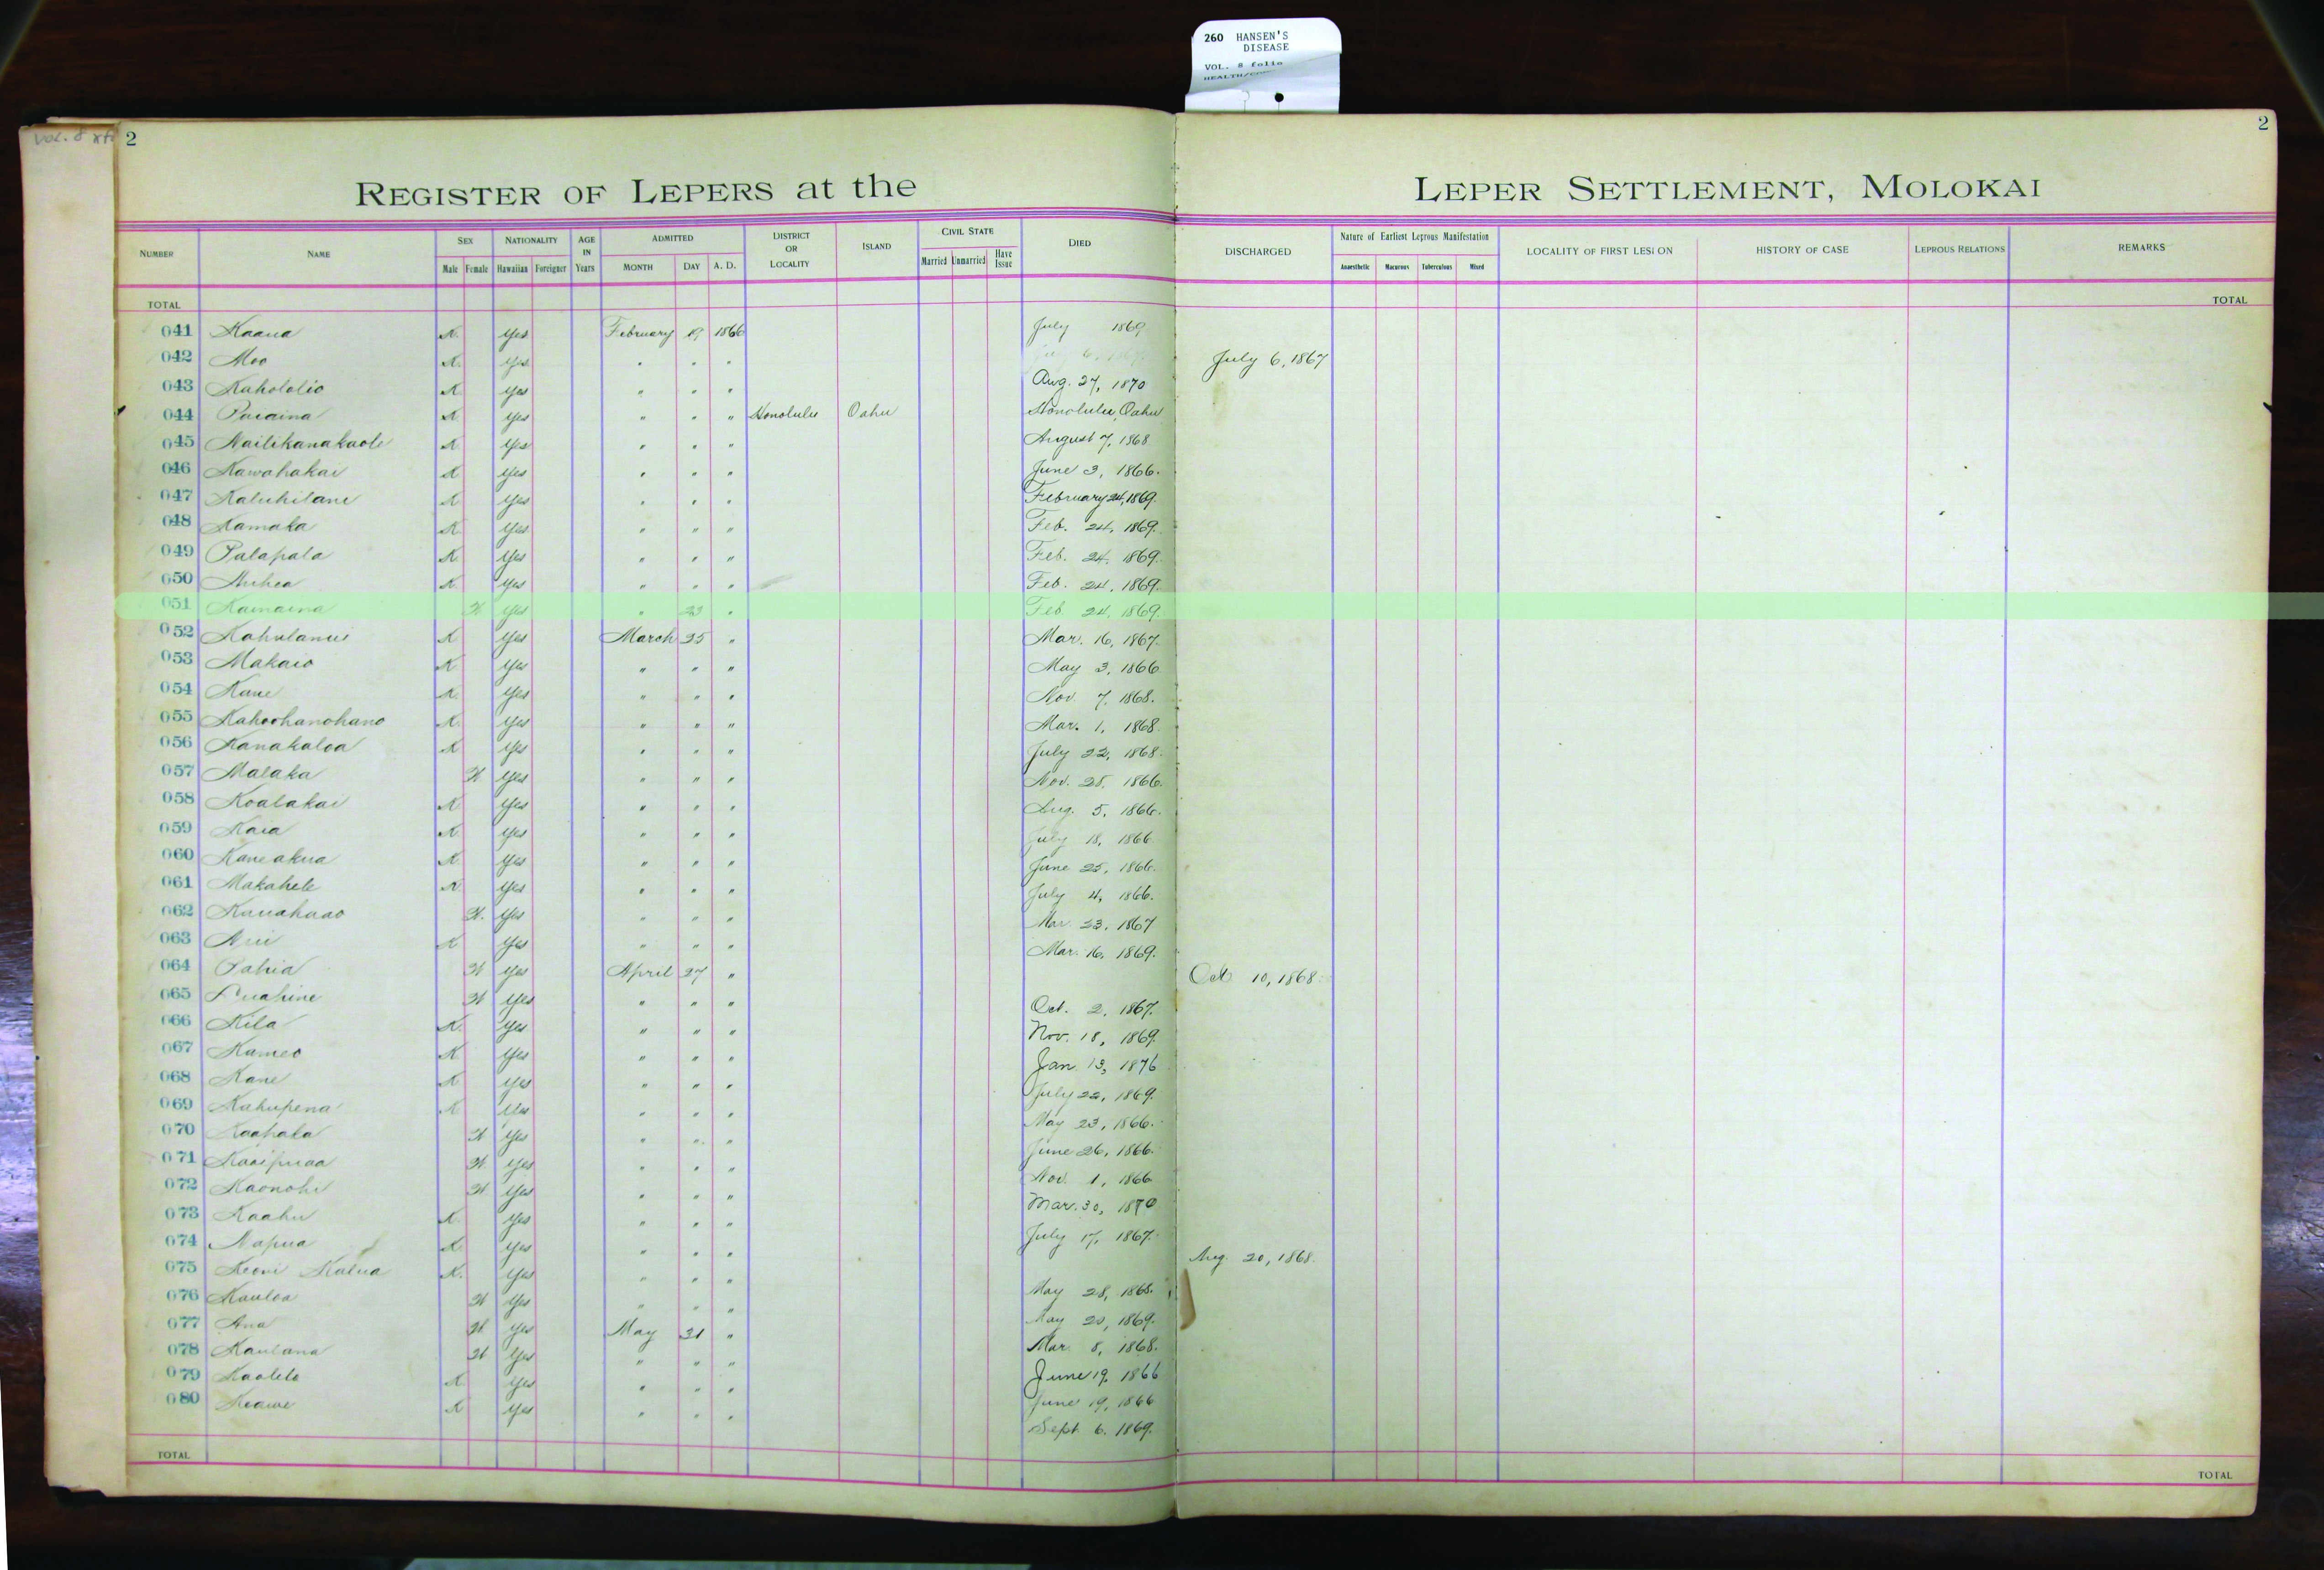 260 HANSEN'S
DISEASE
VOL. 8 folio
VOL. 8
2
2
REGISTER OF LEPERS at the LEPER SETTLEMENT, MOLOKAI
NUMBER NAME SEX Male Female NATIONALITY Hawaiian Foreigner AGE IN Years ADMITTED MONTH DAY A. D. DISTRICT OR LOCALITY ISLAND CIVIL STATE Married Unmarried Have Issue DIED DISCHARGED Nature of Earliest Leprous Manifestation Anaesthetic Macurous Tuberculous Mixed LOCALITY OF FIRST LESION HISTORY OF CASE LEPROUS RELATIONS REMARKS
TOTAL TOTAL
041 Kaaua K. Yes February 19 1866 July 1869
042 Moo K. Yes " " " July 6, 1867
043 Kahololio K Yes " " " Aug. 27, 1870
044 Puaaina K Yes " " " Honolulu Oahu Honolulu, Oahu
045 Nailikanakaole K Yes " " " August 7, 1868
046 Kawahakai K Yes " " " June 3, 1866.
047 Kaluhilani K Yes " " " February 24, 1869.
048 Kamaka K Yes " " " Feb. 24, 1869.
049 Palapala K. Yes " " " Feb. 24, 1869.
050 Auhea K. Yes " " " Feb. 24, 1869.
051 Kamaina W Yes " 23 " Feb. 24, 1869.
052 Kahulanui K Yes March 25 " Mar. 16, 1867.
053 Makaio K Yes " " " May 3, 1866
054 Kane K. Yes " " " Nov. 7, 1868.
055 Kahoohanohano K. Yes " " " Mar. 1, 1868.
056 Kanakaloa K Yes " " " July 22, 1868.
057 Malaka W Yes " " " Nov. 28, 1866.
058 Koalakai K Yes " " " Aug. 5, 1866.
059 Kaia K. Yes " " " July 18, 1866.
060 Kaneakua K Yes " " " June 25, 1866.
061 Makahele K Yes " " " July 4, 1866.
062 Kauahaao W. Yes " " " Mar. 23, 1867
063 Aui K Yes " " " Mar. 16, 1869.
064 Pahia W Yes April 27 " Oct 10, 1868.
065 Luahine W Yes " " " Oct. 2, 1867.
066 Kila K. Yes " " " Nov. 18, 1869.
067 Kameo K Yes " " " Jan 13, 1876
068 Kane K Yes " " " July 22, 1869.
069 Kahupena K Yes " " " May 23, 1866.
070 Kaahala W Yes " " " June 26, 1866.
071 Kaaipuaa W. Yes " " " Nov. 1, 1866
072 Kaonohi W Yes " " " Mar. 30, 1870
073 Kaahu K. Yes " " " July 17, 1867.
074 Napua K. Yes " " " Aug. 20, 1868.
075 Keoni Kalua K. Yes " " " May 28, 1868.
076 Kauloa W Yes " " " May 20, 1869.
077 Ana W. Yes May 31 " Mar. 8, 1868.
078 Kaulana W Yes " " " June 19, 1866
079 Kaolelo K Yes " " " June 19, 1866
080 Keawe K Yes " " " Sept 6, 1869.
TOTAL TOTAL